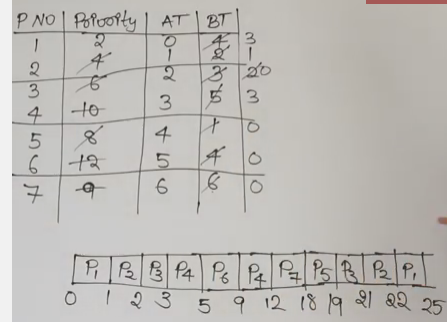 P NO Priority AT BT
1 2 0 4 3
2 4 1 2 1
3 6 2 3 2 0
4 10 3 5 3
5 8 4 1 0
6 12 5 4 0
7 9 6 6 0
P1 P2 P3 P4 P6 P4 P7 P5 P3 P2 P1
0 1 2 3 5 9 12 18 19 21 22 25